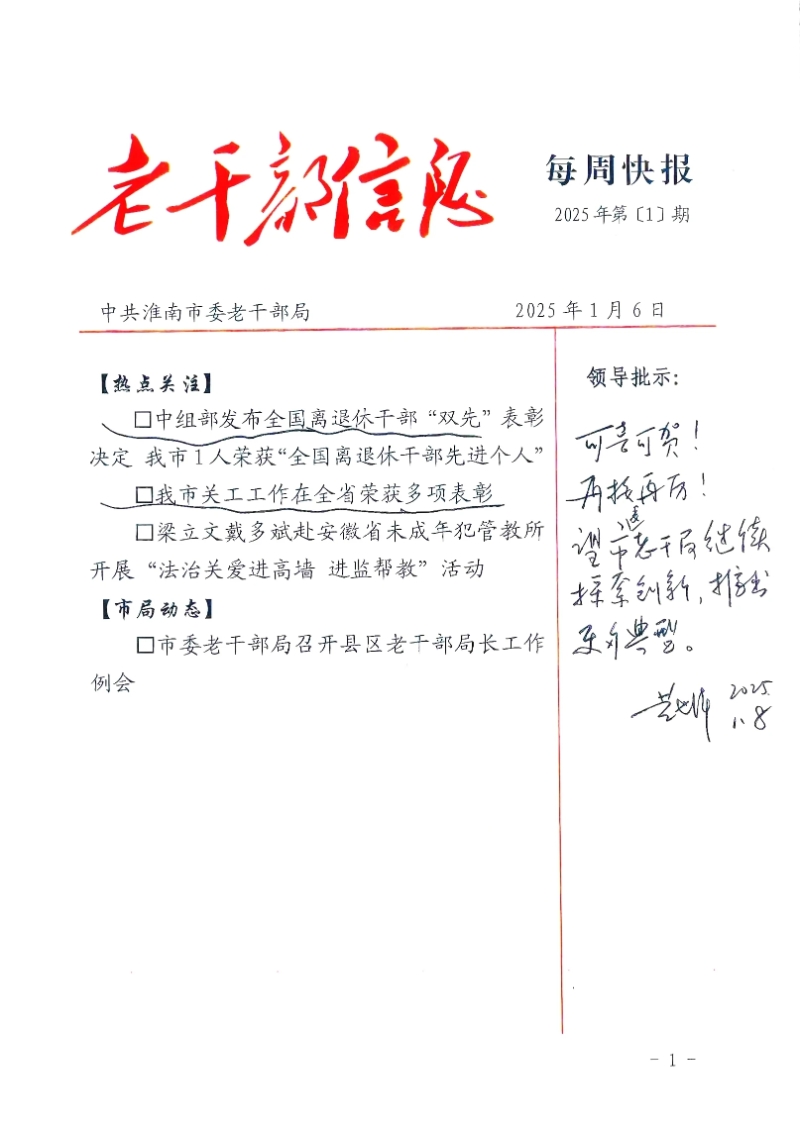 老干部信息
每周快报
2025年第〔1〕期
中共淮南市委老干部局
2025年1月6日
【热点关注】
□中组部发布全国离退休干部“双先”表彰
决定 我市1人荣获“全国离退休干部先进个人”
□我市关工工作在全省荣获多项表彰
□梁立文戴多斌赴安徽省未成年犯管教所
开展“法治关爱进高墙 进监帮教”活动
【市局动态】
□市委老干部局召开县区老干部局长工作
例会
领导批示：
可喜可贺！
再接再厉！
望市老干局继续
探索创新，推出
更多典型。
2025
1.8
- 1 -